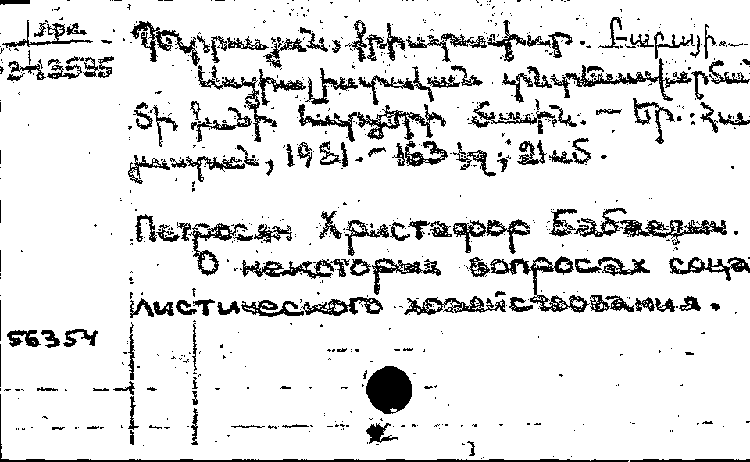 Պետրոսյան, Քրիստափոր Բաբաջ.
Սոցիալիստական տնտեսավարման
մի քանի հարցերի մասին. — Եր.: Հա
յաստան, 1981. — 163 էջ; 21 սմ.
Петросян Христафор
О некоторых вопросах соци
листического хозяйствования.
56354